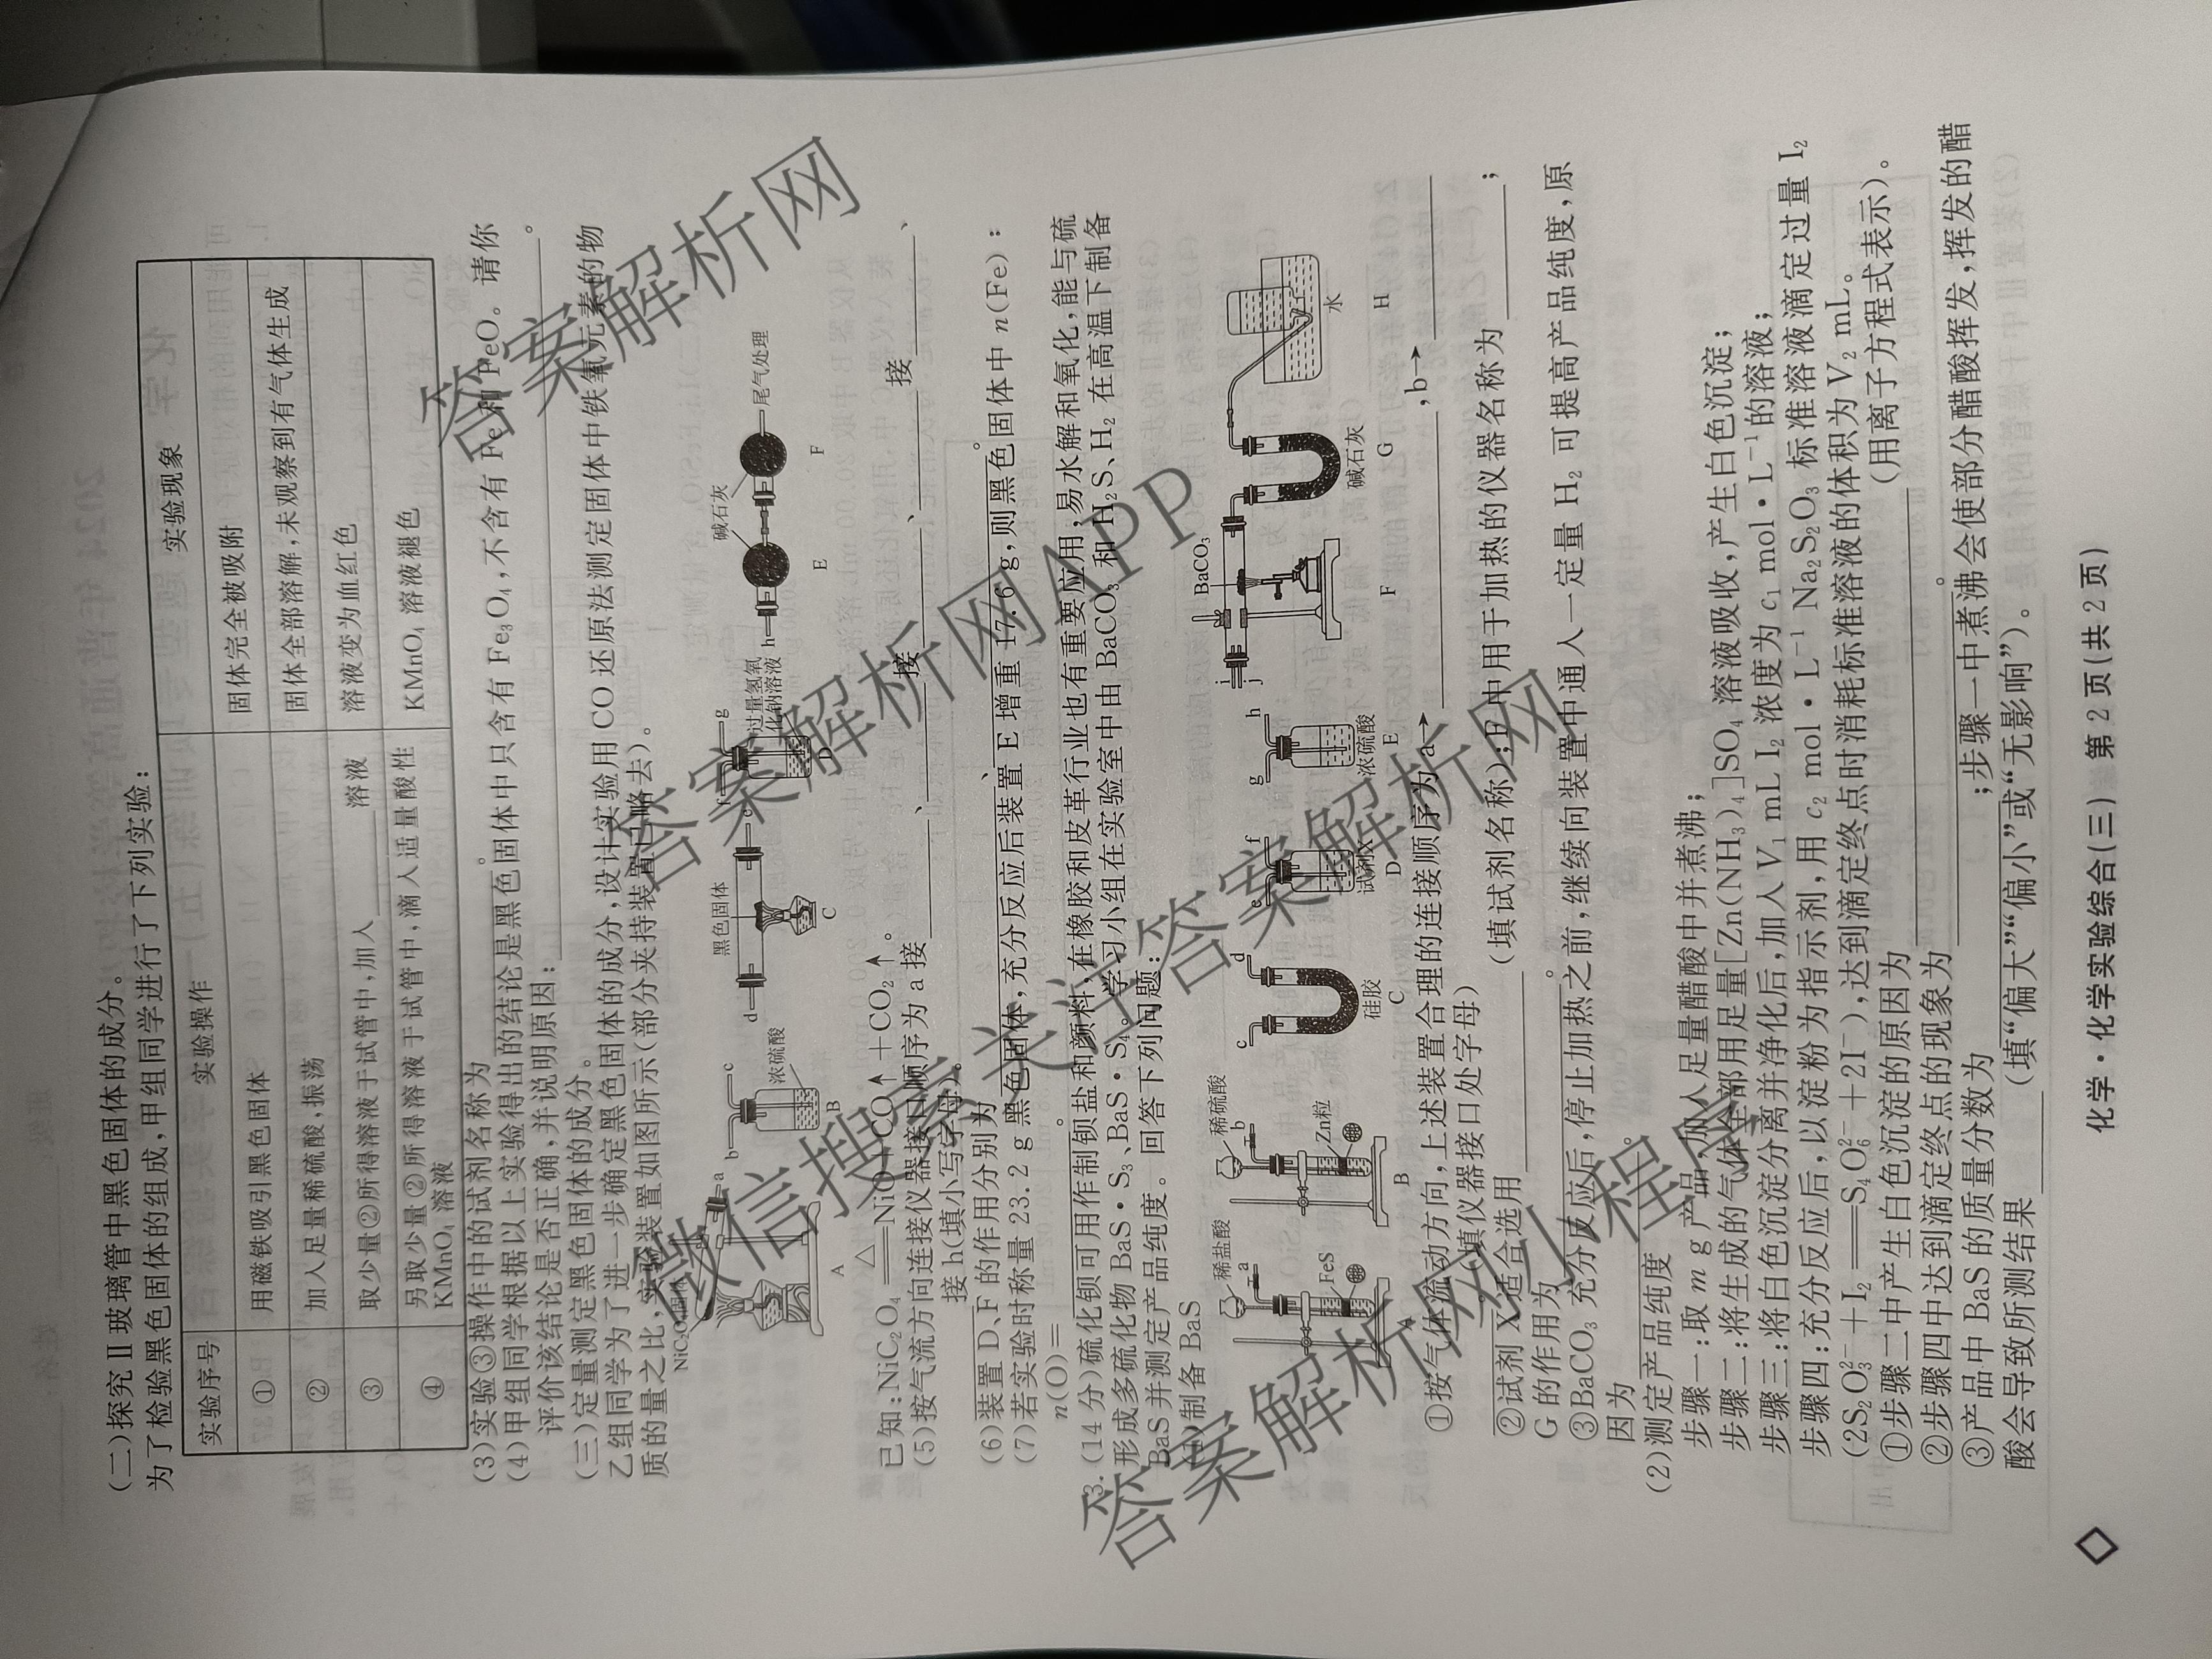 (二)探究Ⅱ玻璃管中黑色固体的成分。
为了检验黑色固体的组成,甲组同学进行了下列实验:
实验序号 实验操作 实验现象
① 用磁铁吸引黑色固体 固体完全被吸附
② 加入足量稀硫酸,振荡 固体全部溶解,未观察到有气体生成
③ 取少量②所得溶液于试管中,加入______溶液 溶液变为血红色
④ 另取少量②所得溶液于试管中,滴入适量酸性 KMnO₄ 溶液 KMnO₄ 溶液褪色
(3)实验③操作中的试剂名称为______。
(4)甲组同学根据以上实验得出的结论是黑色固体中只含有 Fe₃O₄,不含有 Fe 和 FeO。请你
评价该结论是否正确,并说明原因:______。
(三)定量测定黑色固体的成分。
乙组同学为了进一步确定黑色固体的成分,设计实验用 CO 还原法测定固体中铁氧元素的物
质的量之比,实验装置如图所示(部分夹持装置已略去)。
NiC₂O₄固体 a A
b c 浓硫酸 B
黑色固体 d e C
f g 过量氢氧化钠溶液 D
h 碱石灰 E F 尾气处理
已知:NiC₂O₄ =△= NiO+CO↑+CO₂↑。
(5)按气流方向连接仪器接口顺序为 a 接______、______接______、______接______、
接 h(填小写字母)。
(6)装置 D、F 的作用分别为______、______。
(7)若实验时称量 23.2 g 黑色固体,充分反应后装置 E 增重 17.6 g,则黑色固体中 n(Fe):
n(O)=______。
3. (14 分)硫化钡可用作制钡盐和颜料,在橡胶和皮革行业也有重要应用,易水解和氧化,能与硫
形成多硫化物 BaS·S₃、BaS·S₄。学习小组在实验室中由 BaCO₃ 和 H₂S、H₂ 在高温下制备
BaS 并测定产品纯度。回答下列问题:
(1)制备 BaS
稀盐酸 a FeS A
稀硫酸 b Zn粒 B
c d 硅胶 C
e f 试剂X D
g h 浓硫酸 E
i j BaCO₃ F
碱石灰 G
水 H
①按气体流动方向,上述装置合理的连接顺序为 a→______,b→______
(填仪器接口处字母)
②试剂 X 适合选用______(填试剂名称);F 中用于加热的仪器名称为______;
G 的作用为______。
③BaCO₃ 充分反应后,停止加热之前,继续向装置中通入一定量 H₂ 可提高产品纯度,原
因为______。
(2)测定产品纯度
步骤一:取 m g 产品,加入足量醋酸中并煮沸;
步骤二:将生成的气体全部用足量[Zn(NH₃)₄]SO₄ 溶液吸收,产生白色沉淀;
步骤三:将白色沉淀分离并净化后,加入 V₁ mL I₂ 浓度为 c₁ mol·L⁻¹的溶液;
步骤四:充分反应后,以淀粉为指示剂,用 c₂ mol·L⁻¹ Na₂S₂O₃ 标准溶液滴定过量 I₂
(2S₂O₃²⁻+I₂══S₄O₆²⁻+2I⁻),达到滴定终点时消耗标准溶液的体积为 V₂ mL。
①步骤二中产生白色沉淀的原因为______(用离子方程式表示)。
②步骤四中达到滴定终点的现象为______。
③产品中 BaS 的质量分数为______;步骤一中煮沸会使部分醋酸挥发,挥发的醋
酸会导致所测结果______(填“偏大”“偏小”或“无影响”)。
化学·化学实验综合(三) 第 2 页(共 2 页)
答案解析网
答案解析网APP
答案解析网
微信搜索 关注 答案解析网
答案解析网 小程序